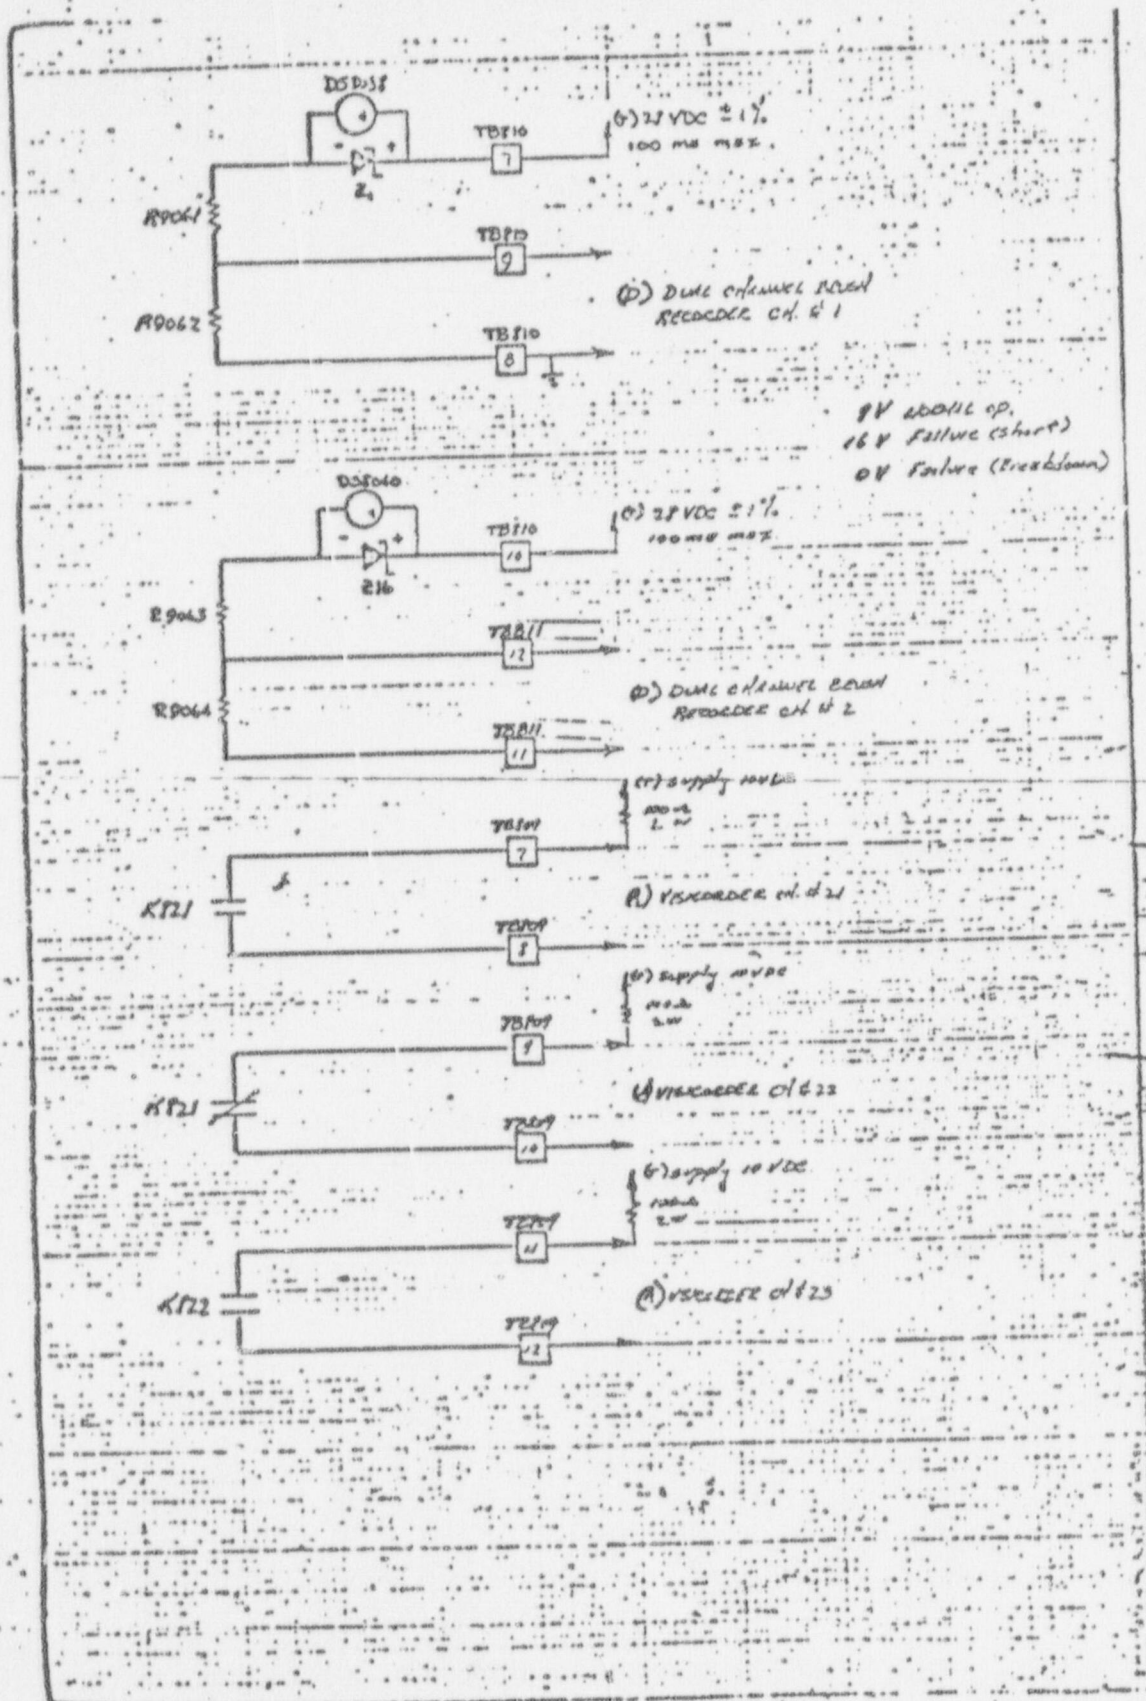 TB810
7
(+) 28 VDC ± 1%
100 ma max.
Z1
R9061
TB810
9
(D) DUAL CHANNEL BRUSH
RECORDER CH. # 1
R9062
TB810
8
16 V Failure (short)
0 V Failure (Breakdown)
DS8060
TB810
10
(+) 28 VDC ± 1%
100 ma max
R9063
TB811
12
(D) DUAL CHANNEL BRUSH
RECORDER CH # 2
R9064
TB811
11
(+) supply
TB809
7
K821
(A) VISICORDER CH. # 21
TB809
8
(+) supply 10 VDC
TB809
9
K821
VISICORDER CH # 22
TB809
10
(+) supply 10 VDC
2 W
TB809
11
K822
(A) VISICORDER CH # 23
TB809
12